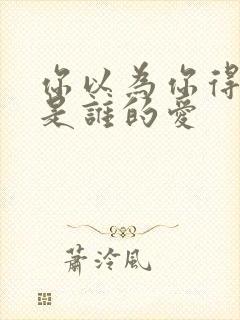 你以為你得
是誰的愛
蕭泠風